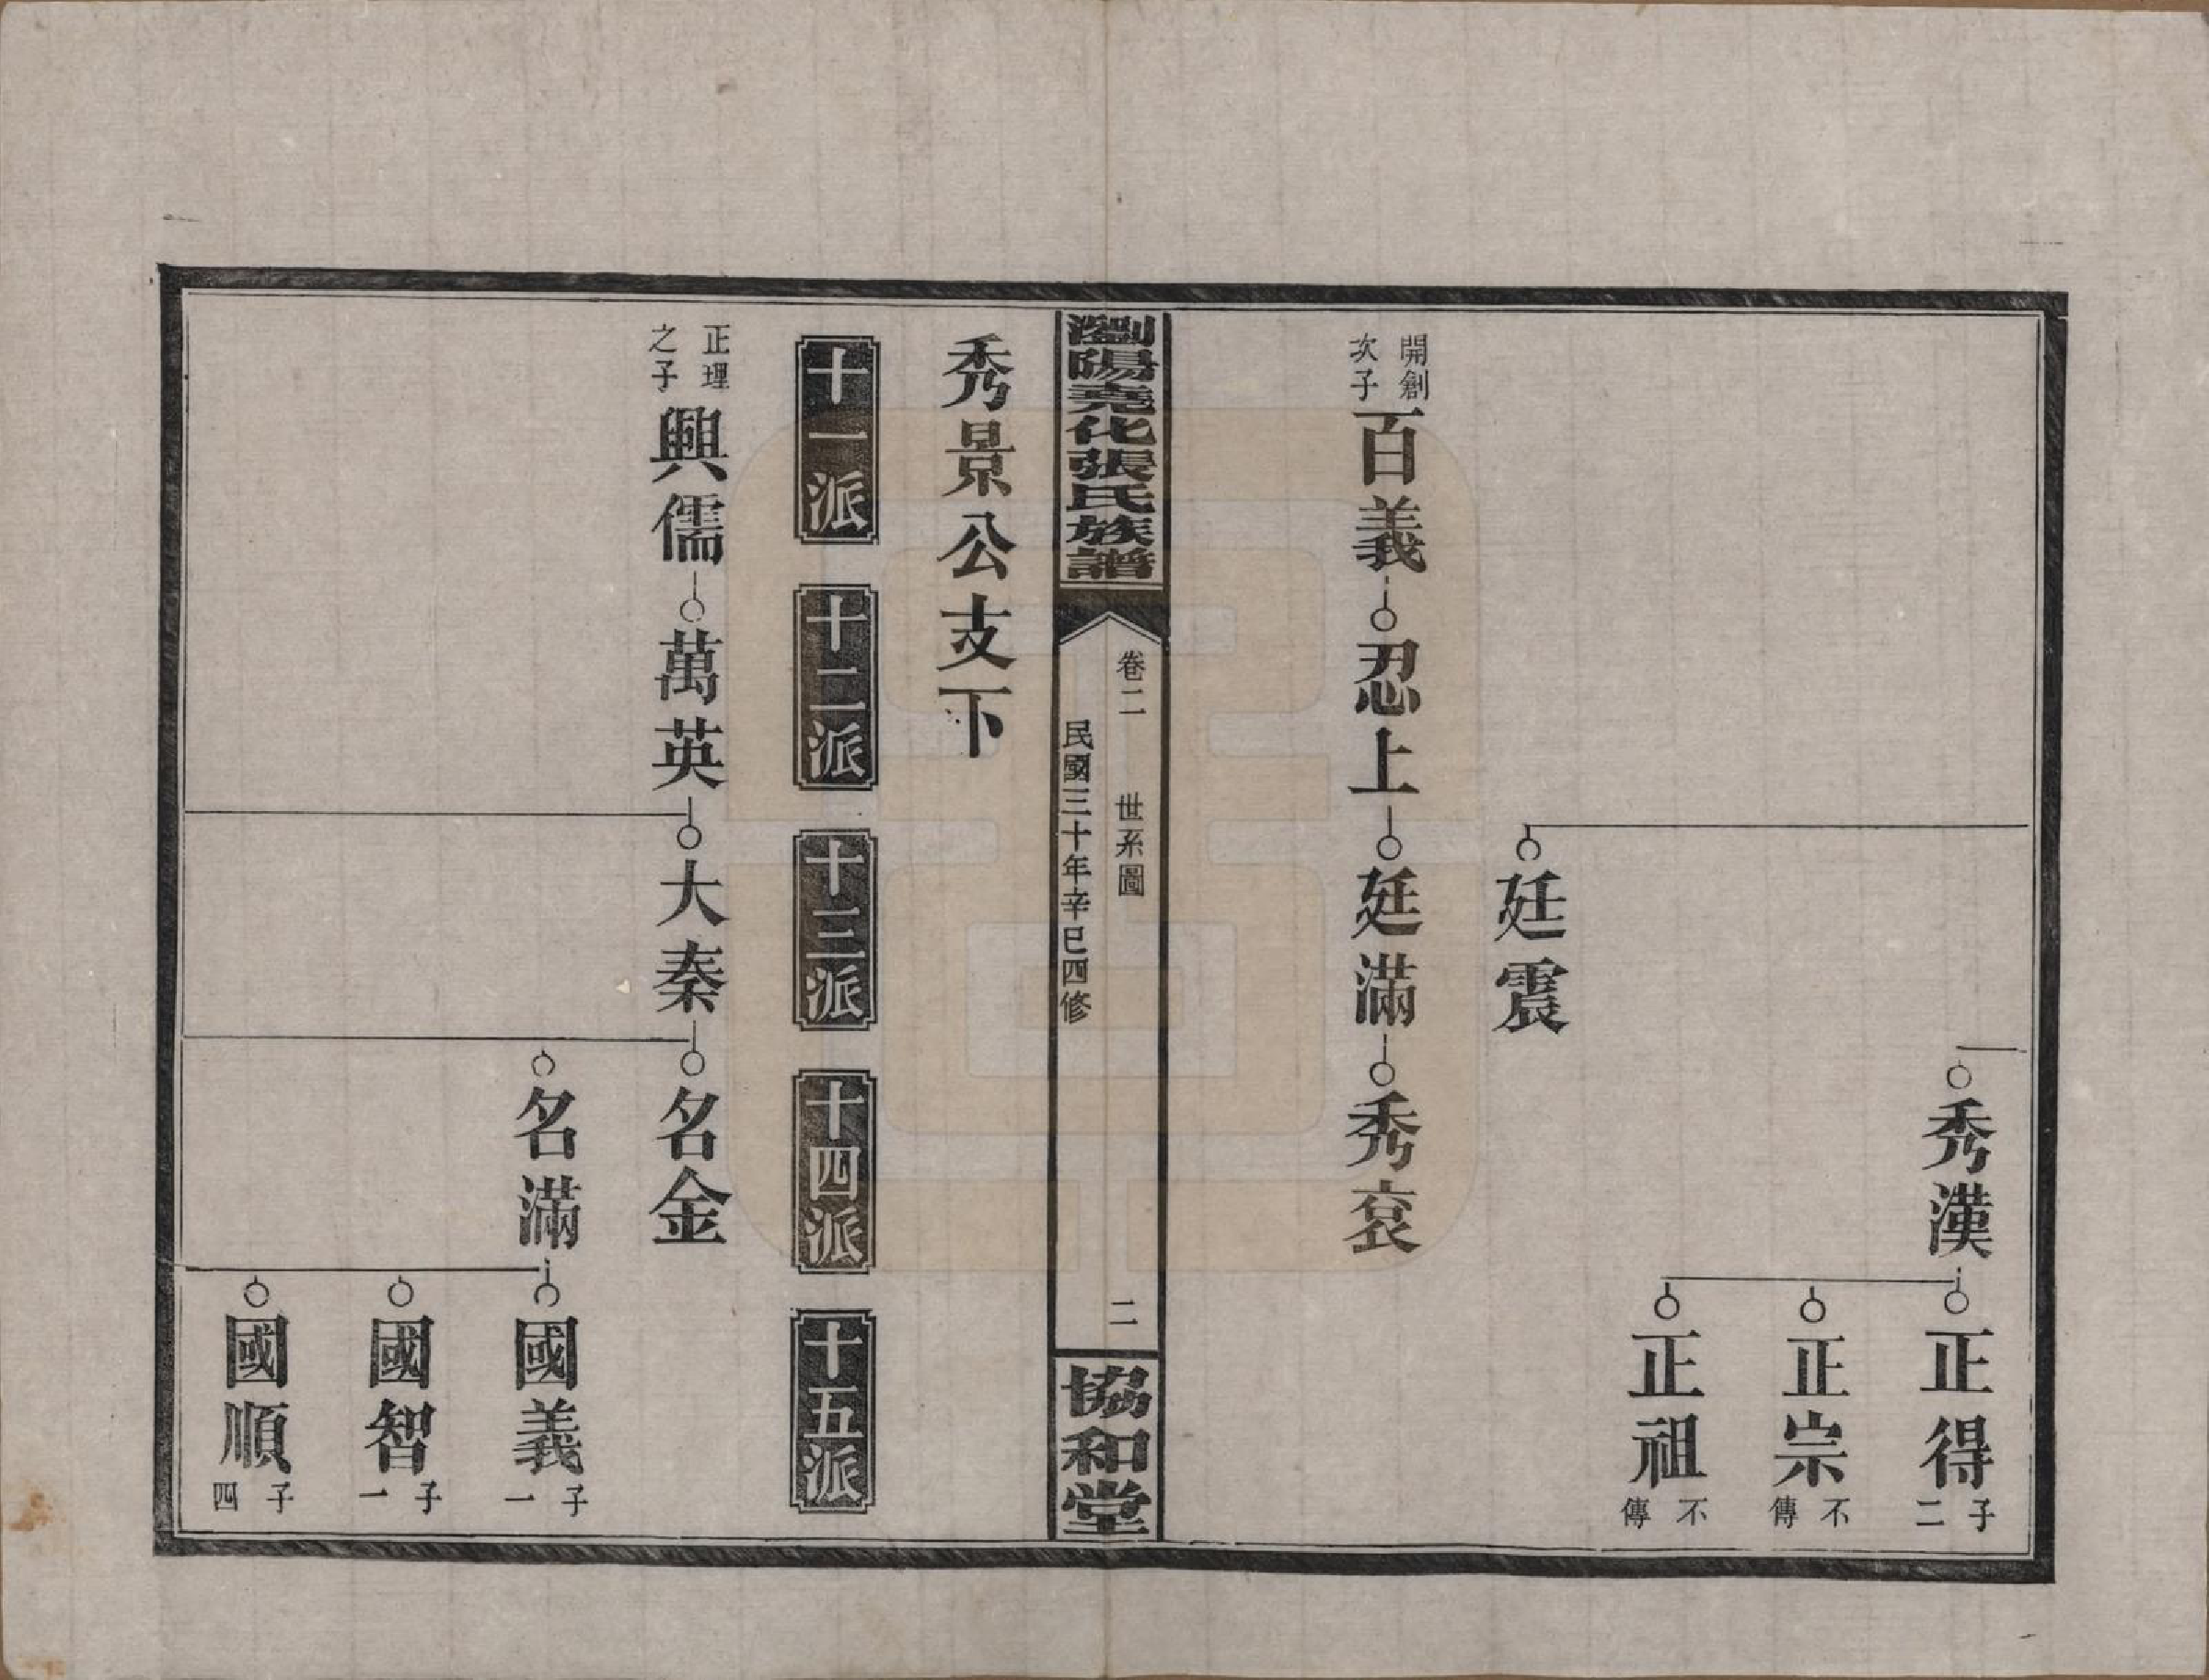 秀漢
正得
子二
正宗
不傳
正祖
不傳
廷震
開創次子
百義
忍上
廷滿
秀袞
瀏陽堯化張氏族譜
卷二 世系圖 二
民國三十年辛巳四修
協和堂
秀景公支下
十一派
十二派
十三派
十四派
十五派
正理之子
興儒
萬英
大秦
名金
名滿
國義
子一
國智
子一
國順
子四